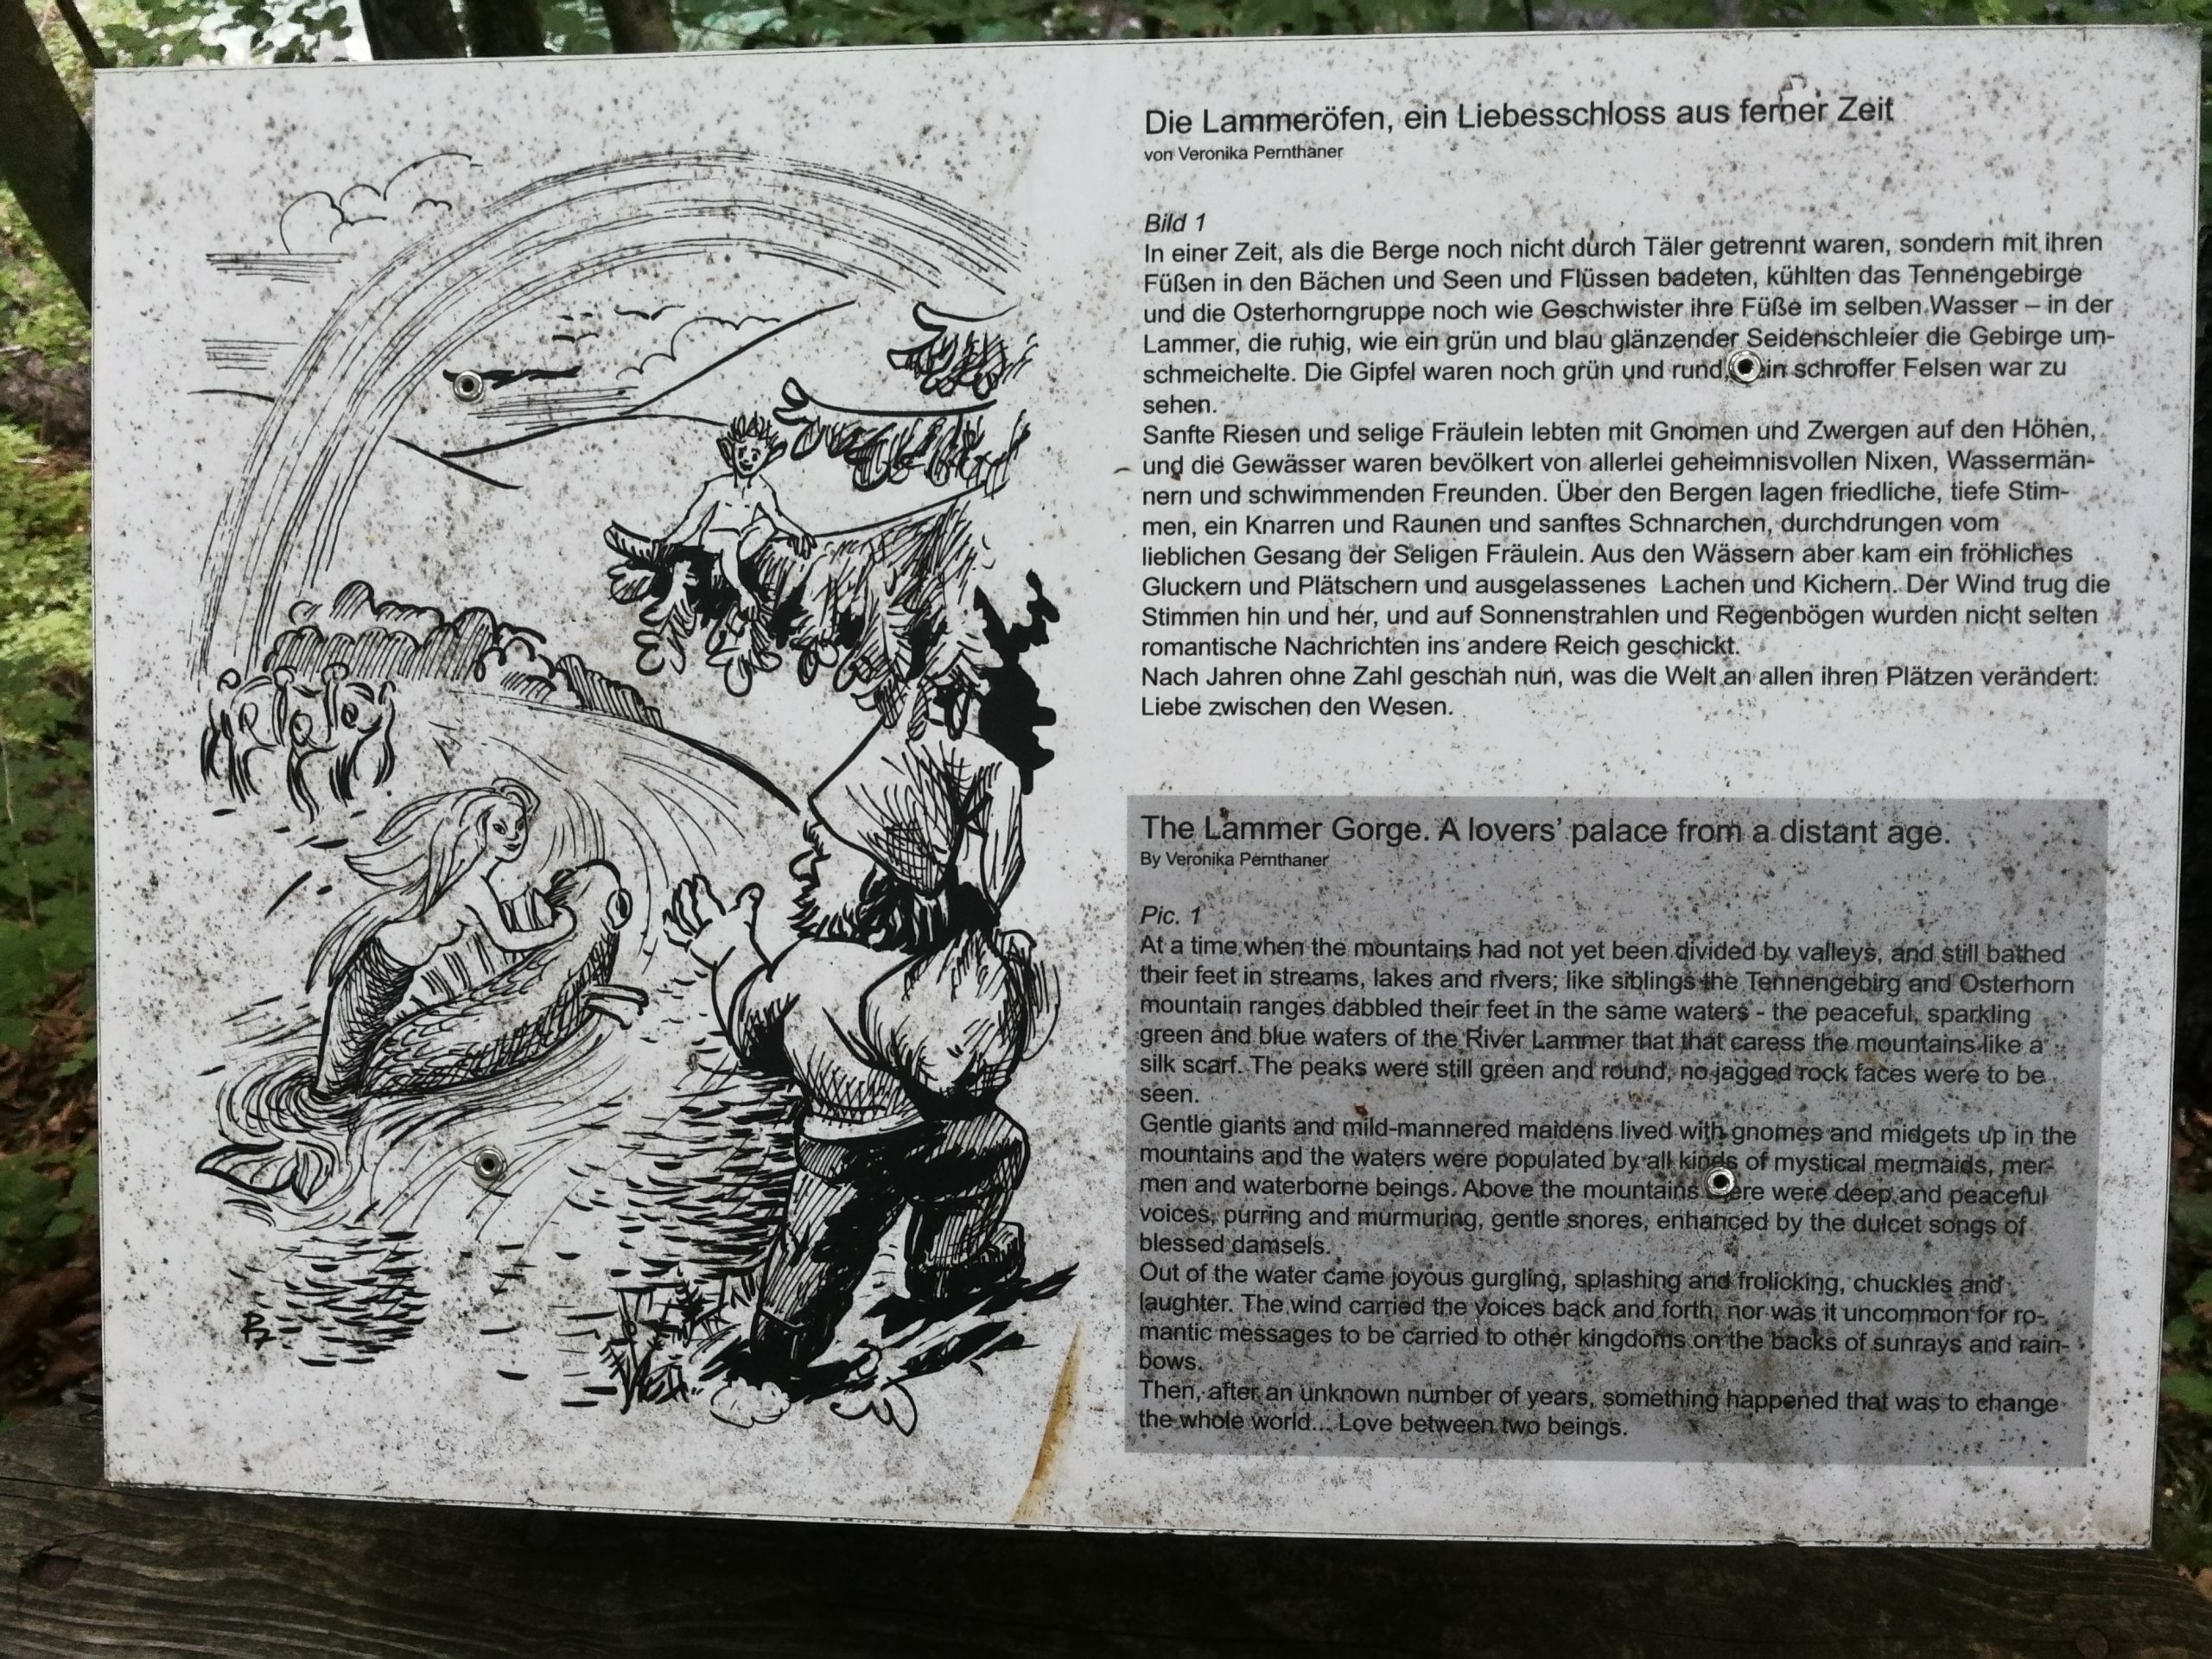 Die Lammeröfen, ein Liebesschloss aus ferner Zeit
von Veronika Pernthaner
Bild 1
In einer Zeit, als die Berge noch nicht durch Täler getrennt waren, sondern mit ihren
Füßen in den Bächen und Seen und Flüssen badeten, kühlten das Tennengebirge
und die Osterhorngruppe noch wie Geschwister ihre Füße im selben Wasser – in der
Lammer, die ruhig, wie ein grün und blau glänzender Seidenschleier die Gebirge um-
schmeichelte. Die Gipfel waren noch grün und rund, schroffer Felsen war zu
sehen.
Sanfte Riesen und selige Fräulein lebten mit Gnomen und Zwergen auf den Höhen,
und die Gewässer waren bevölkert von allerlei geheimnisvollen Nixen, Wassermän-
nern und schwimmenden Freunden. Über den Bergen lagen friedliche, tiefe Stim-
men, ein Knarren und Raunen und sanftes Schnarchen, durchdrungen vom
lieblichen Gesang der Seligen Fräulein. Aus den Wässern aber kam ein fröhliches
Gluckern und Plätschern und ausgelassenes Lachen und Kichern. Der Wind trug die
Stimmen hin und her, und auf Sonnenstrahlen und Regenbögen wurden nicht selten
romantische Nachrichten ins andere Reich geschickt.
Nach Jahren ohne Zahl geschah nun, was die Welt an allen ihren Plätzen verändert:
Liebe zwischen den Wesen.
The Lammer Gorge. A lovers' palace from a distant age.
By Veronika Pernthaner
Pic. 1
At a time when the mountains had not yet been divided by valleys, and still bathed
their feet in streams, lakes and rivers; like siblings the Tennengebirg and Osterhorn
mountain ranges dabbled their feet in the same waters - the peaceful, sparkling
green and blue waters of the River Lammer that that caress the mountains like a
silk scarf. The peaks were still green and round, no jagged rock faces were to be
seen.
Gentle giants and mild-mannered maidens lived with gnomes and midgets up in the
mountains and the waters were populated by all kinds of mystical mermaids, mer-
men and waterborne beings. Above the mountains were deep and peaceful
voices, purring and murmuring, gentle snores, enhanced by the dulcet songs of
blessed damsels.
Out of the water came joyous gurgling, splashing and frolicking, chuckles and
laughter. The wind carried the voices back and forth, nor was it uncommon for ro-
mantic messages to be carried to other kingdoms on the backs of sunrays and rain-
bows.
Then, after an unknown number of years, something happened that was to change
the whole world... Love between two beings.